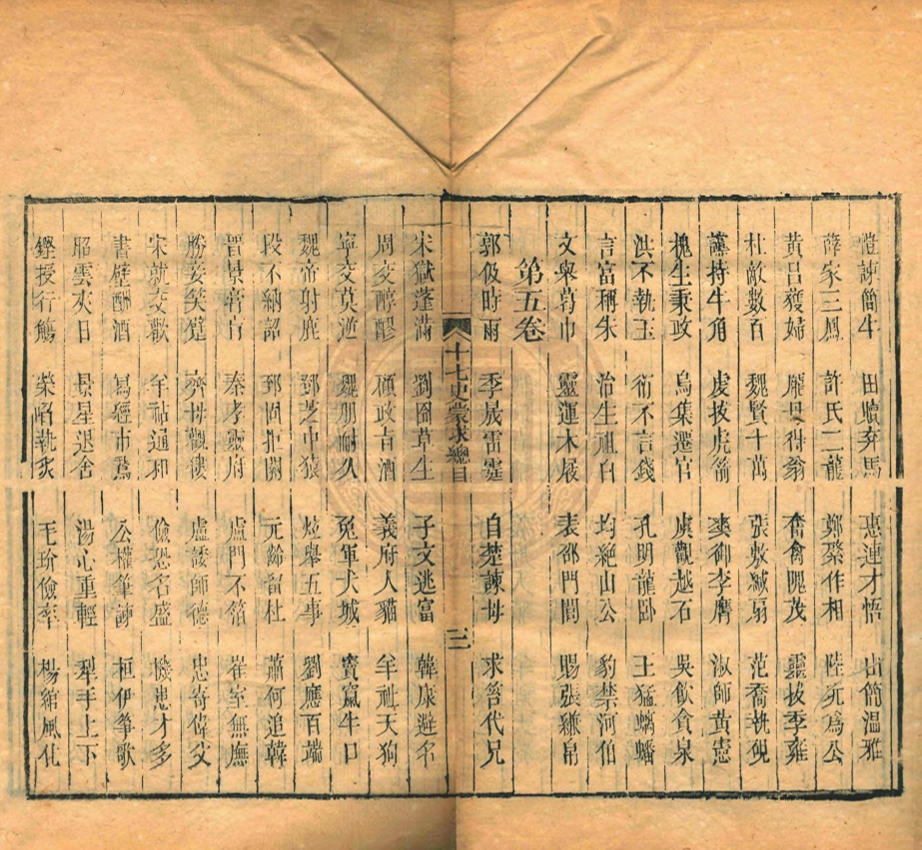 愷諫簡牛 田贖弃馬 惠連才悟 山簡溫雅
薛家三鳳 許氏二龍 鄭綮作相 陸玩爲公
黃昌獲婦 龐母得翁 喬禽隗茂 靈拔季雍
杜敵數百 魏賢十萬 張敷緘扇 范喬執硯
護持牛角 虔拔虎箭 爽御李膺 淑師黃憲
槐生秉政 烏集選官 虞觀越石 吳飲貪泉
洪不執玉 衍不言錢 孔明龍臥 王猛螭蟠
言富稱朱 治生祖白 均絕山公 豹禁河伯
文舉葛巾 靈運木屐 表邵門閭 賜張縑帛
第五卷
郭伋時雨 季晟雷霆 自楚諫母 求笞代兄
十七史蒙求總目 三
宋獄蓬滿 劉囹草生 子文逃富 韓康避名
周交醇醪 顧政旨酒 義府人貓 牟祉天狗
寧交莫逆 魏朋耐久 兔軍犬城 竇嬴牛口
魏帝射鹿 鄧芝中猿 炫舉五事 劉應百端
段不納詔 郅固拒關 元齡留杜 蕭何追韓
晉景膏肓 秦孝靈府 盧門不箔 崔室無廡
勝妾笑躄 齊母觀僂 盧諉師德 忠寄偉父
宋就交歡 羊祜通和 儉恐名盛 機患才多
書壁酬酒 寫經市鵞 公權筆諫 桓伊箏歌
昭雲夾日 景星退舍 湯心重輕 犁手上下
鏗授行觴 榮啗執炙 毛玠儉率 楊綰風化